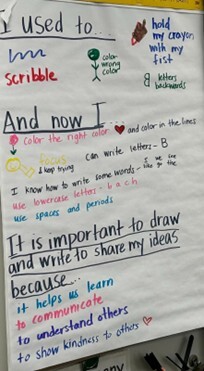 I used to...
hold
my crayons
with my
fist
color
wrong
color
scribble
letters
backwards
And now I
color the right color and color in the lines
focus
& keep trying
Can write letters - B
I know how to write some words - I we the
like go the
use lowercase letters - b a c h
use spaces and periods
It is important to draw
and write to share my ideas
because...
it helps us learn
to communicate
to understand others
to show kindness to others